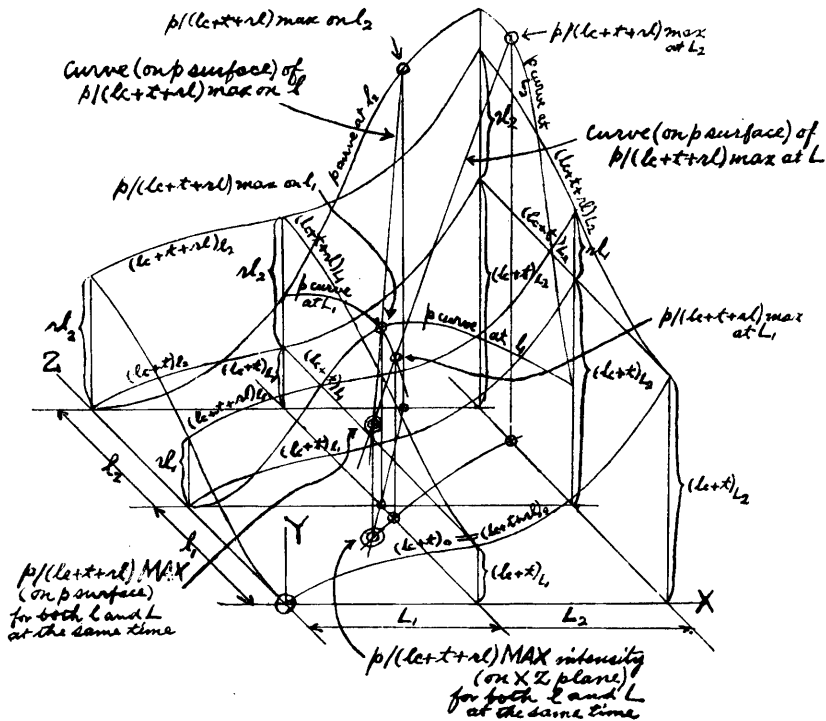 p/(lc+t+rl) max on l₂
p/(lc+t+rl) max
at L₂
Curve (on p surface) of
p/(lc+t+rl) max on l
p curve at l₂
p curve at
L₂
rl₂
Curve (on p surface) of
p/(lc+t+rl) max at L
p/(lc+t+rl) max on l₁
(lc+t+rl)L₂
(lc+t+rl)l₂
(lc+t+rl)L₁
(lc+t)l₂
(lc+t)L₂
rl₁
rl₂
(lc+t)L₂
p curve
at L₁
p curve
at l₁
p/(lc+t+rl) max
at L₁
rl₂
Z
(lc+t)l₂
(lc+t)L₁
(lc+t)L₁
(lc+t)L₂
(lc+t+rl)l₁
(lc+t)l₁
rl₁
l₂
(lc+t)L₂
l₁
Y
(lc+t)₀ = (lc+t+rl)₀
(lc+t)L₁
p/(lc+t+rl) MAX
(on p surface)
for both l and L
at the same time
X
L₁
L₂
p/(lc+t+rl) MAX intensity
(on X Z plane)
for both l and L
at the same time